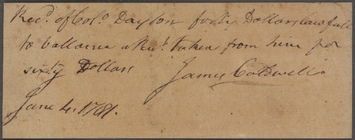 Rec.d of Col.o Dayton Dollars
to ballance a Rec.t taken from him for
sixty Dollars James Caldwell
June 4. 1781.